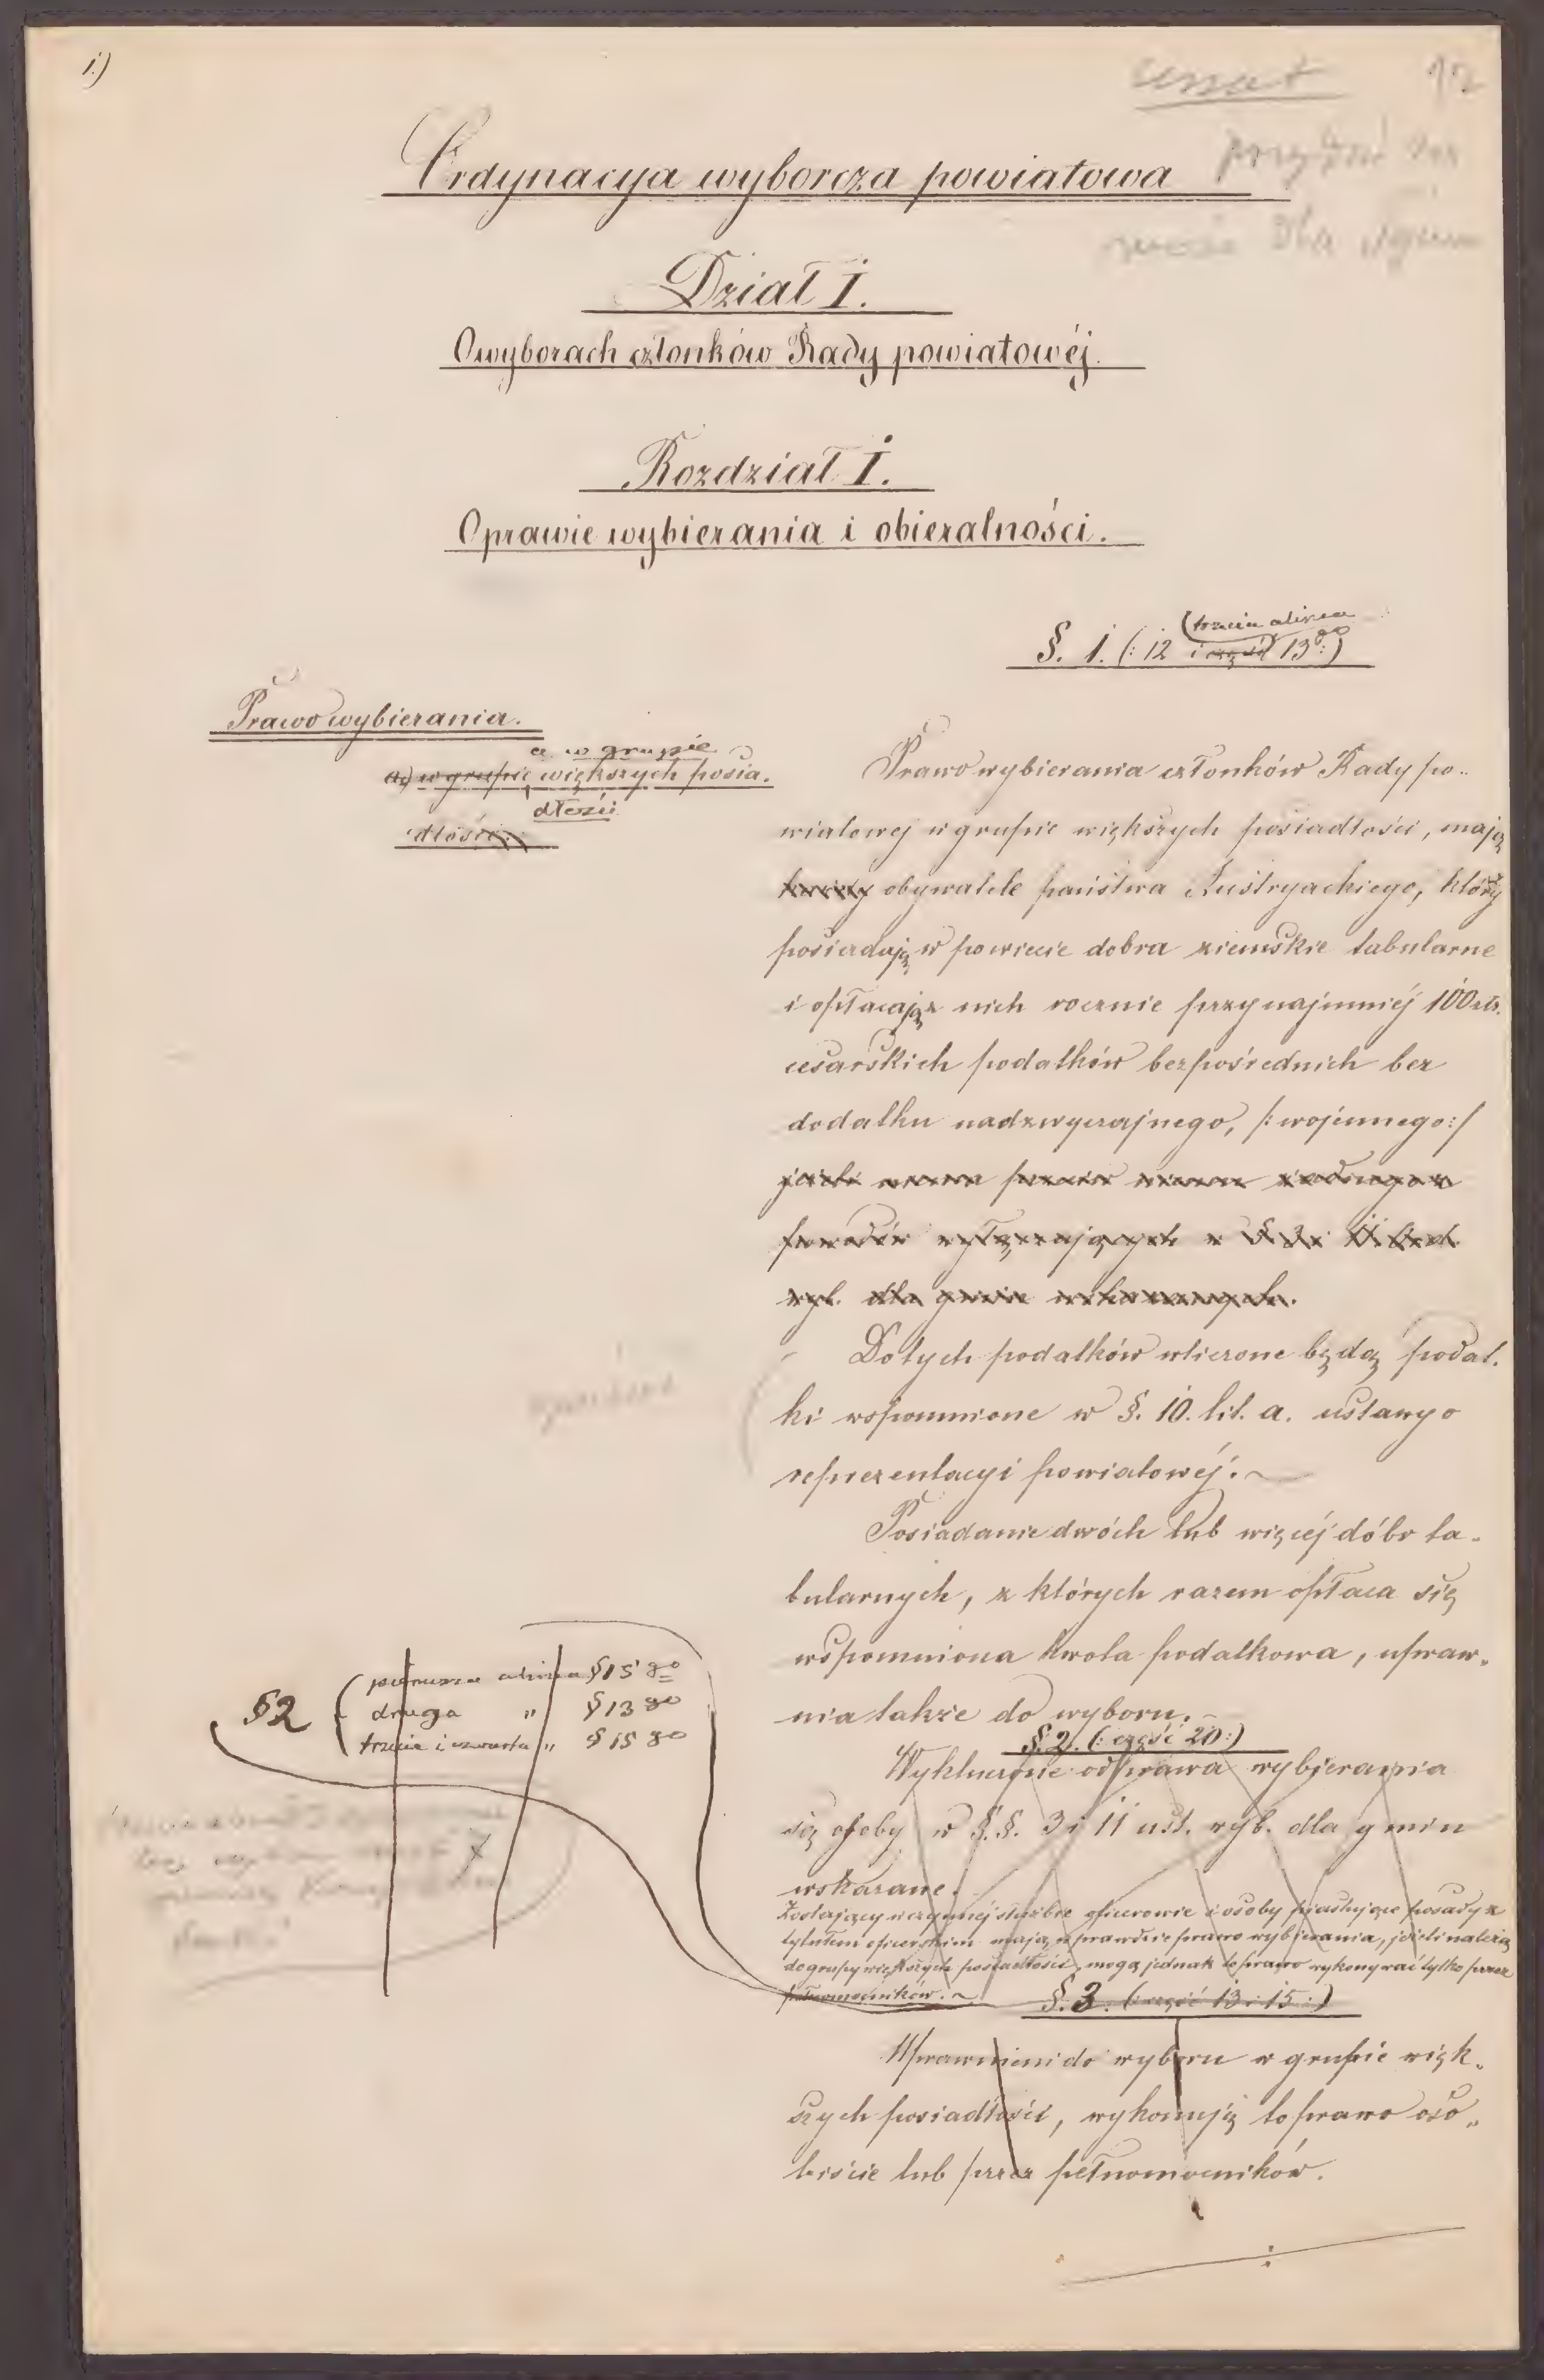 1.)
Ordynacya wyborcza powiatowa
Dział I.
O wyborach członków Rady powiatowéj.
Rozdział I.
O prawie wybierania i obieralności.
(trzecia alinea
§. 1. (: 12 i część 13go :)
Prawo wybierania.
a. w grupie
a) w grupie większych posia-
dłości
dłości:
Prawo wybierania członków Rady po-
wiatowej w grupie większych posiadłości, mają
każdy obywatele państwa Austryackiego, którzy
posiadają w powiecie dobra ziemskie tabularne
i opłacają z nich rocznie przynajmniéj 100 złr.
cesarskich podatków bezpośrednich bez
dodatku nadzwyczajnego, /: wojennego :/
Do tych podatków wliczone będą podat-
ki wspomnione w §. 10. lit. a. ustawy o
reprezentacyi powiatowéj. ~
Posiadanie dwóch lub więcéj dóbr ta-
bularnych, z których razem opłaca się
wspomniona kwota podatkowa, upraw-
nia także do wyboru. -
§2 ( pierwsza alinea § 15 go
druga " § 13 go
trzecia i czwarta " § 15 go
§. 2. (: część 20 :)
Wykluczone od prawa wybierania
są osoby w §.§. 3 i 11 ust. wyb. dla gmin
wskazane.
Zostający w czynnéj służbie oficerowie i osoby piastujące posady z
tytułem oficerskim mają wprawdzie prawo wybierania, jeżeli należą
do grupy większych posiadłości, mogą jednak to prawo wykonywać tylko przez
pełnomocników. ~
§. 3. (: część 13 i 15 :)
Uprawnieni do wyboru w grupie więk-
szych posiadłości, wykonują to prawo oso-
biście lub przez pełnomocników.